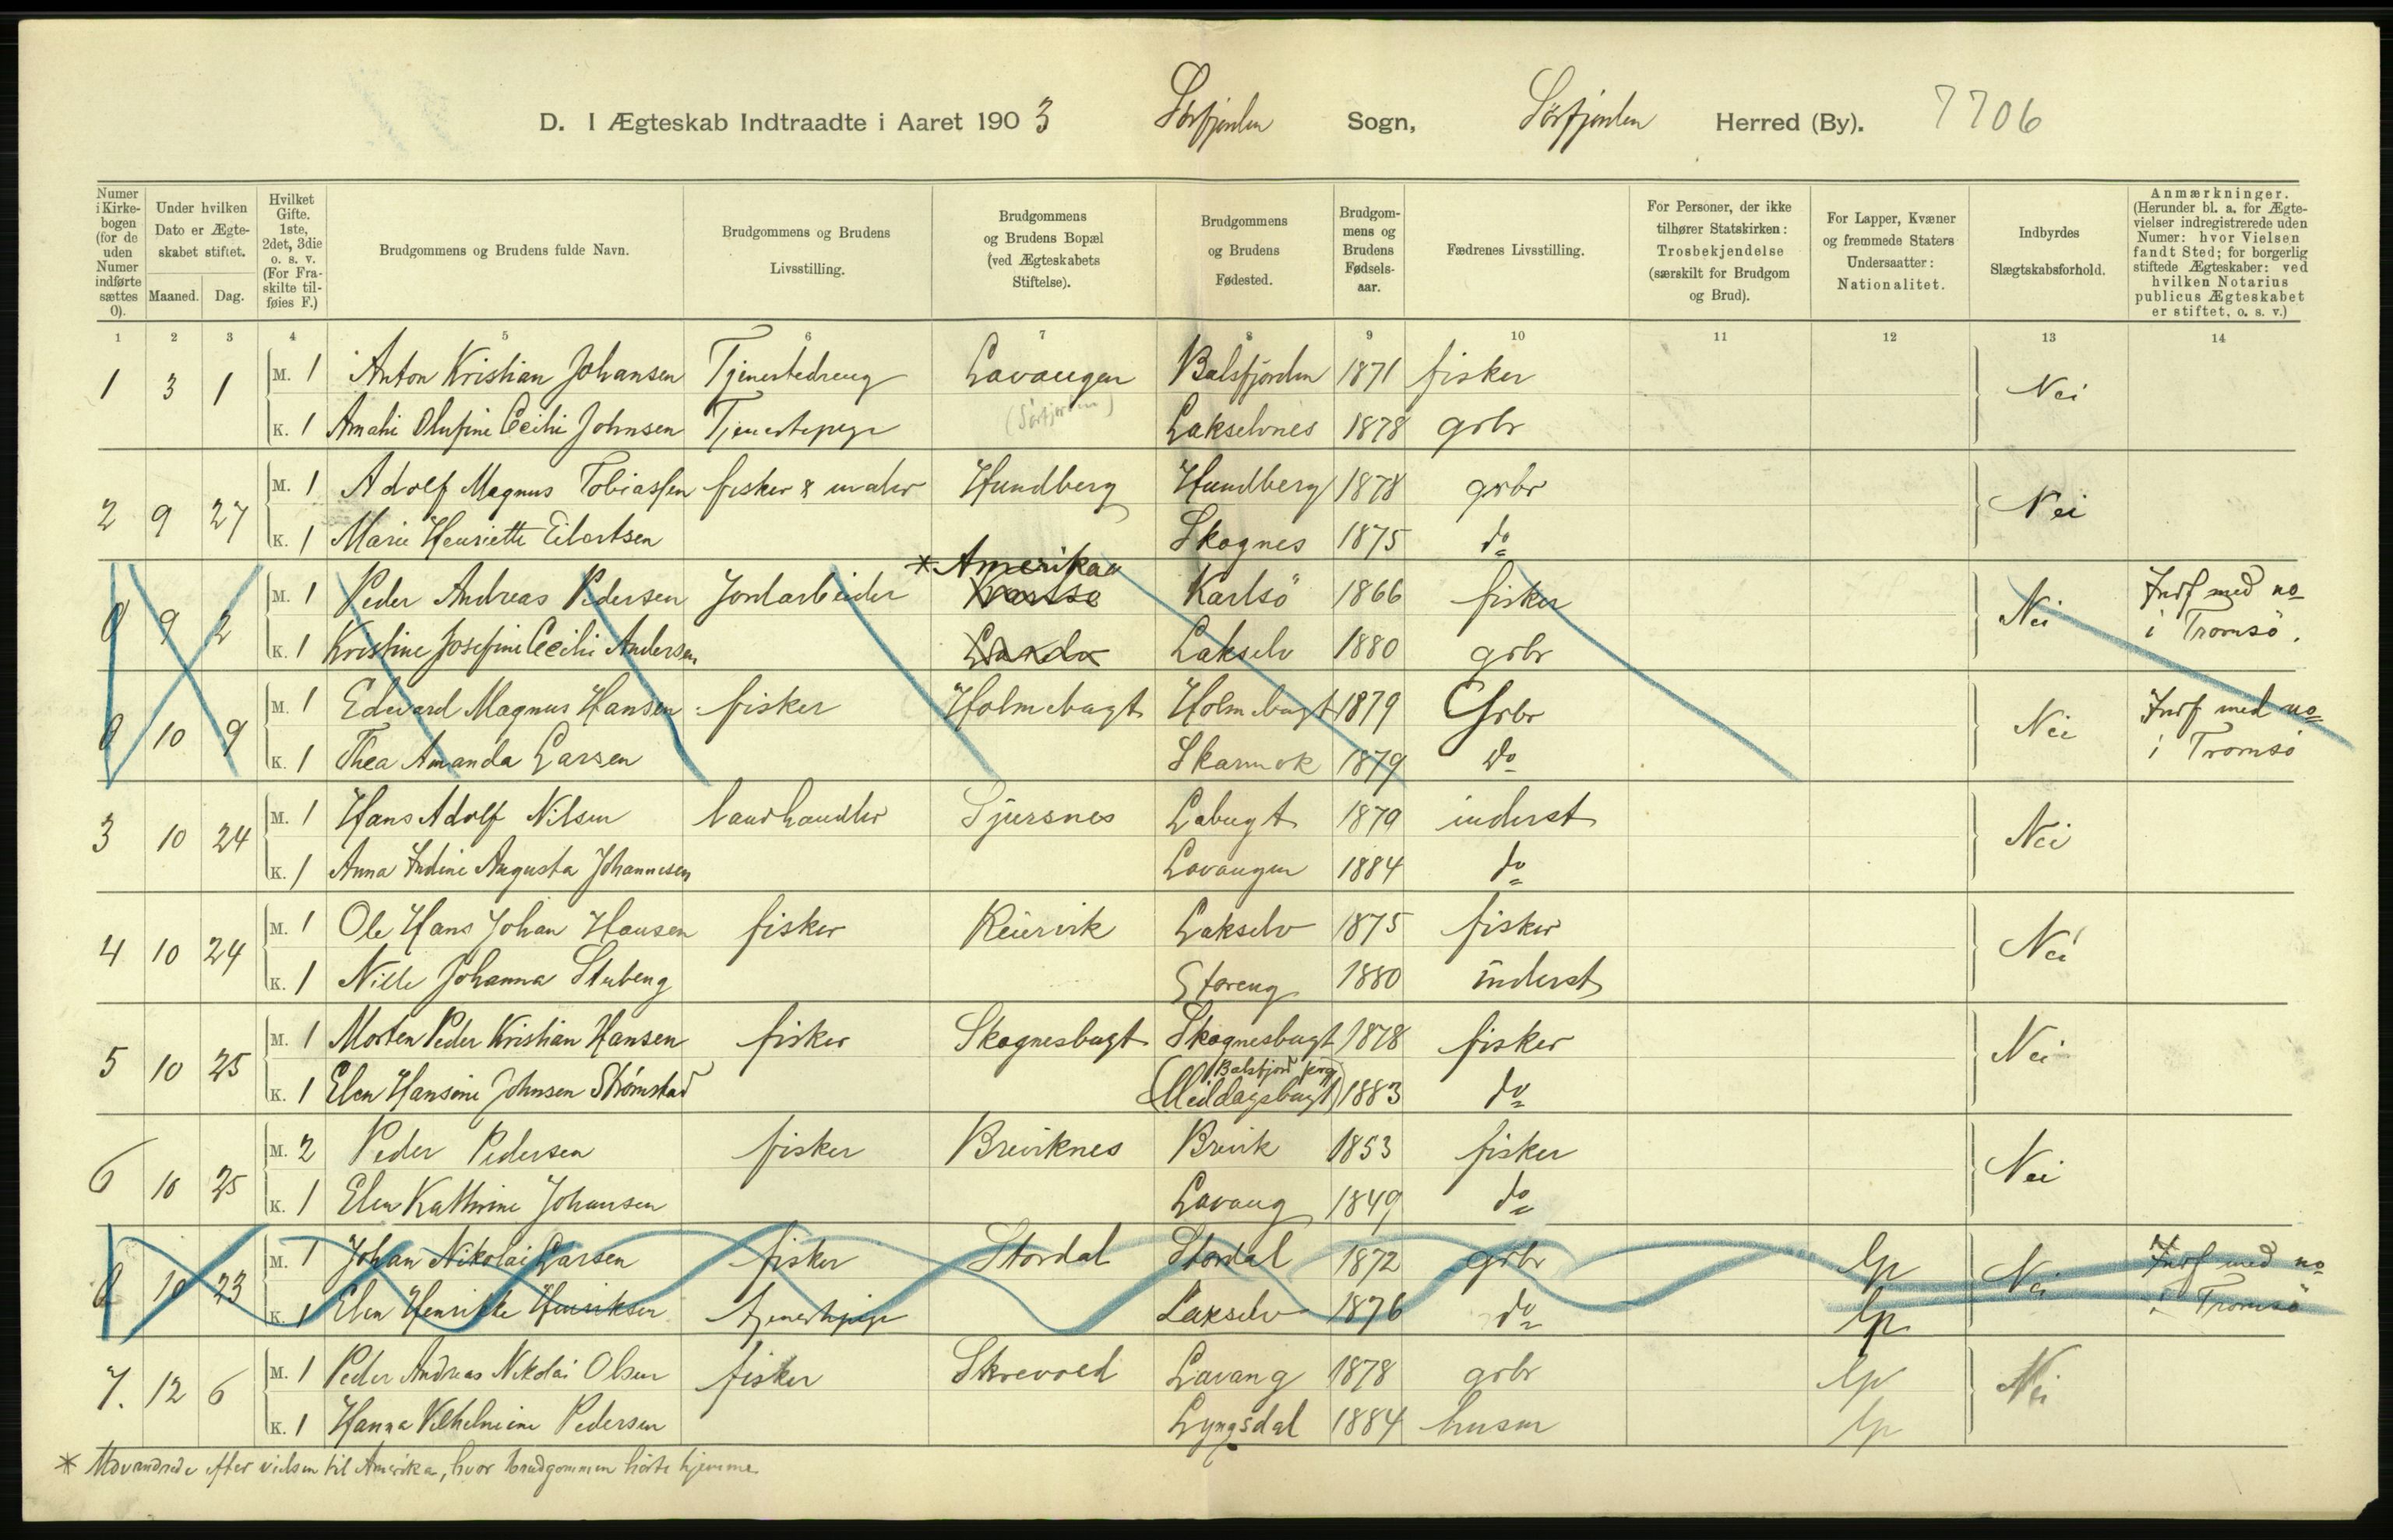 D. I Ægteskab Indtraadte i Aaret 1903 Sørfjorden Sogn, Sørfjorden Herred (By). 7706
Numer i Kirke-bogen (for de uden Numer indførte sættes 0).
Under hvilken Dato er Ægte-skabet stiftet.
Maaned. Dag.
Hvilket Gifte. 1ste, 2det, 3die o. s. v. (For Fra-skilte til-føies F.)
Brudgommens og Brudens fulde Navn.
Brudgommens og Brudens Livsstilling.
Brudgommens og Brudens Bopæl (ved Ægteskabets Stiftelse).
Brudgommens og Brudens Fødested.
Brudgom-mens og Brudens Fødsels-aar.
Fædrenes Livsstilling.
For Personer, der ikke tilhører Statskirken: Trosbekjendelse (særskilt for Brudgom og Brud).
For Lapper, Kvæner og fremmede Staters Undersaatter: Nationalitet.
Indbyrdes Slægtskabsforhold.
Anmærkninger. (Herunder bl. a. for Ægte-vielser indregistrerede uden Numer: hvor Vielsen fandt Sted; for borgerlig stiftede Ægteskaber: ved hvilken Notarius publicus Ægteskabet er stiftet, o. s. v.)
1 2 3 4 5 6 7 8 9 10 11 12 13 14
1 3 1 M. 1 Anton Kristian Johansen Tjenestedreng Lavangen Balsfjorden 1871 fisker Nei
K. 1 Amalie Olufine Cecilie Johnsen Tjenestepige (Sørfjorden) Lakselvnes 1878 grbr
2 9 27 M. 1 Adolf Magnus Tobiassen fisker & maler Hundberg Hundberg 1878 grbr Nei
K. 1 Marie Henriette Eilertsen Skognes 1875 do
0 9 2 M. 1 Peder Andreas Pedersen Jordarbeider * Amerika Karlsø Karlsö 1866 fisker Nei Indf med no
K. 1 Kristine Josefine Cecilie Andersen Lakselv 1880 grbr i Tromsö.
0 10 9 M. 1 Edvard Magnus Hansen fisker Holmebugt Holmebugt 1879 Grbr Nei Indf med no
K. 1 Thea Amanda Larsen Skarmok 1879 Do i Tromsö
3 10 24 M. 1 Hans Adolf Nilsen landhandler Sjursnes Labugt 1879 inderst Nei
K. 1 Anna Indine Augusta Johannesen Lavangen 1884 do
4 10 24 M. 1 Ole Hans Johan Hansen fisker Reiervik Lakselv 1875 fisker Nei
K. 1 Nille Johanna Stubeng Storeng 1880 inderst
5 10 25 M. 1 Morten Peder Kristian Hansen fisker Skognesbugt Skognesbugt 1878 fisker Nei
K. 1 Elen Hansine Johnsen Strömstad (Middagsbugt Balsfjord prg) 1883 do
6 10 25 M. 2 Peder Pedersen fisker Breviknes Brevik 1853 fisker Nei
K. 1 Elen Kathrine Johansen Lavang 1849 do
0 10 23 M. 1 Johan Nikolai Larsen fisker Stordal Stordal 1872 grbr lp Nei Indf med no
K. 1 Elen Henrikke Henriksen tjenestepige Lakselv 1876 do lp i Tromsö
7. 12 6 M. 1 Peder Andreas Nikolai Olsen fisker Skrevold Lavang 1878 grbr lp Nei
K. 1 Hanna Vilhelmine Pedersen Lyngsdal 1884 husm lp
* Udvandrede efter vielsen til Amerika, hvor brudgommen hörte hjemme